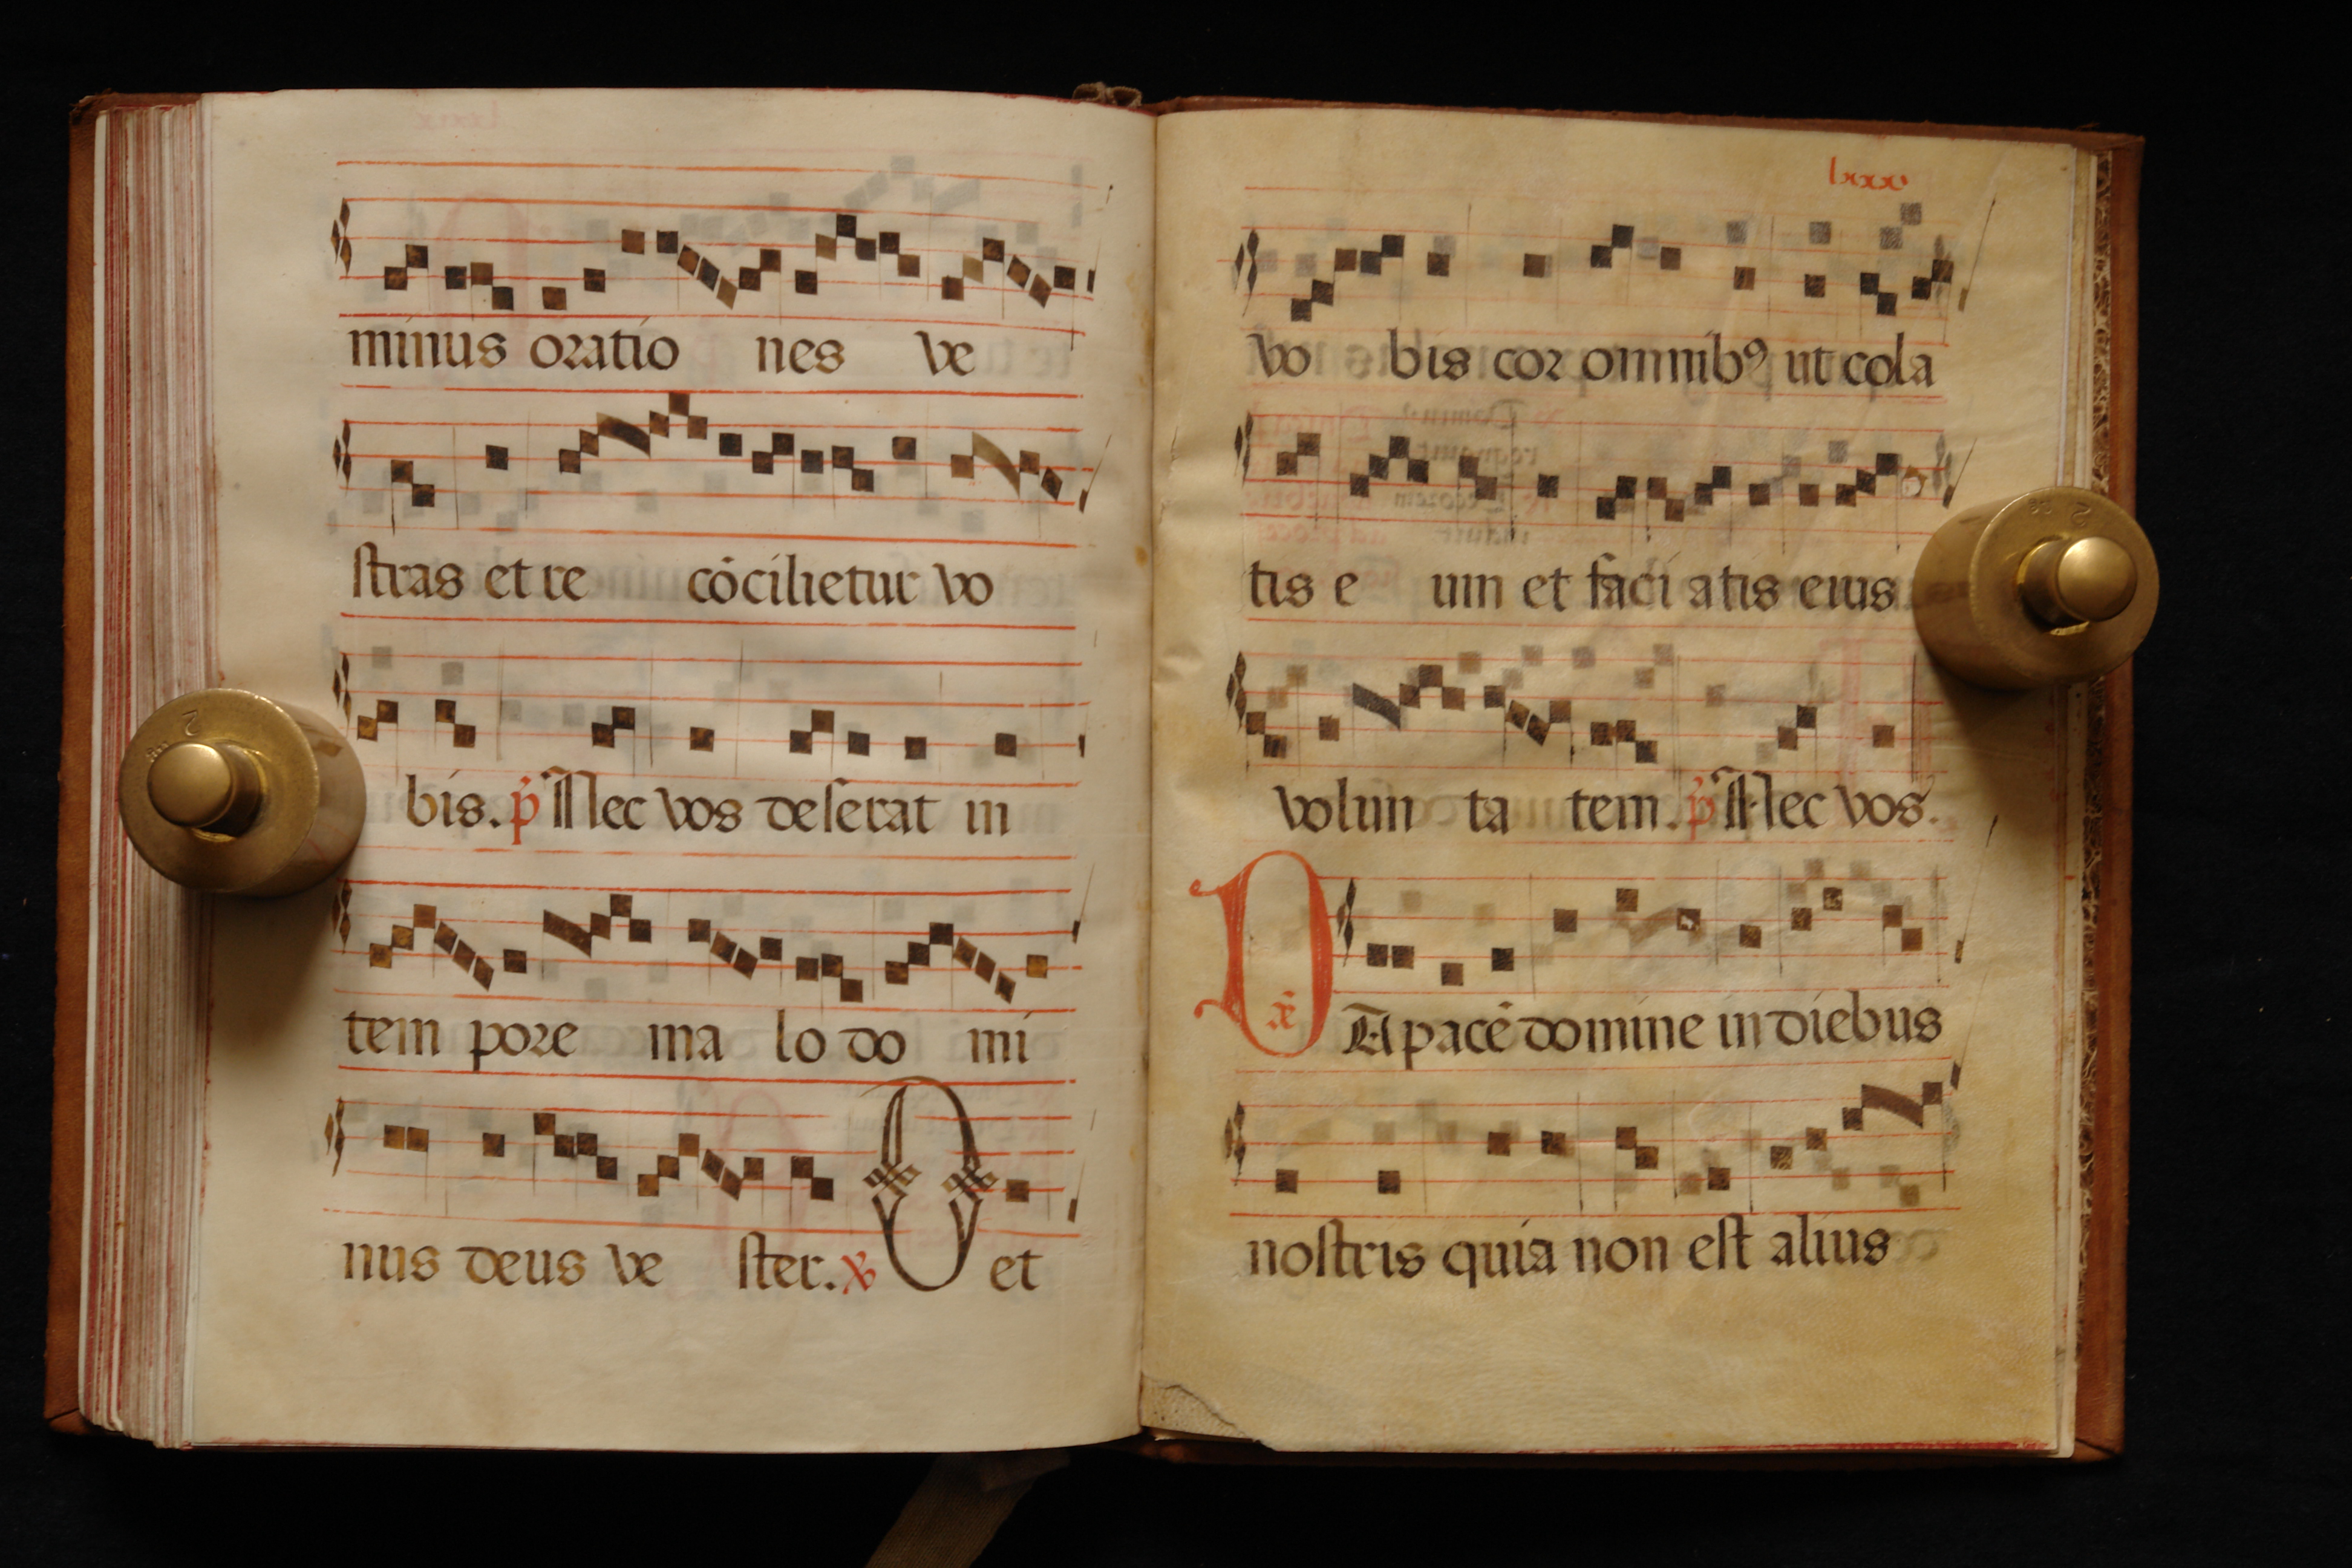 minus oratio nes ve
stras et re cōcilietur vo
bis. p̄ Nec vos deserat in
tem pore ma lo do mi
nus deus ve ster. ℣ Det
lxxx
vo bis cor omnibꝰ ut cola
tis e um et faci atis eius
volun ta tem. p̄ Nec vos.
DA pacē domine in diebus
nostris quia non est alius